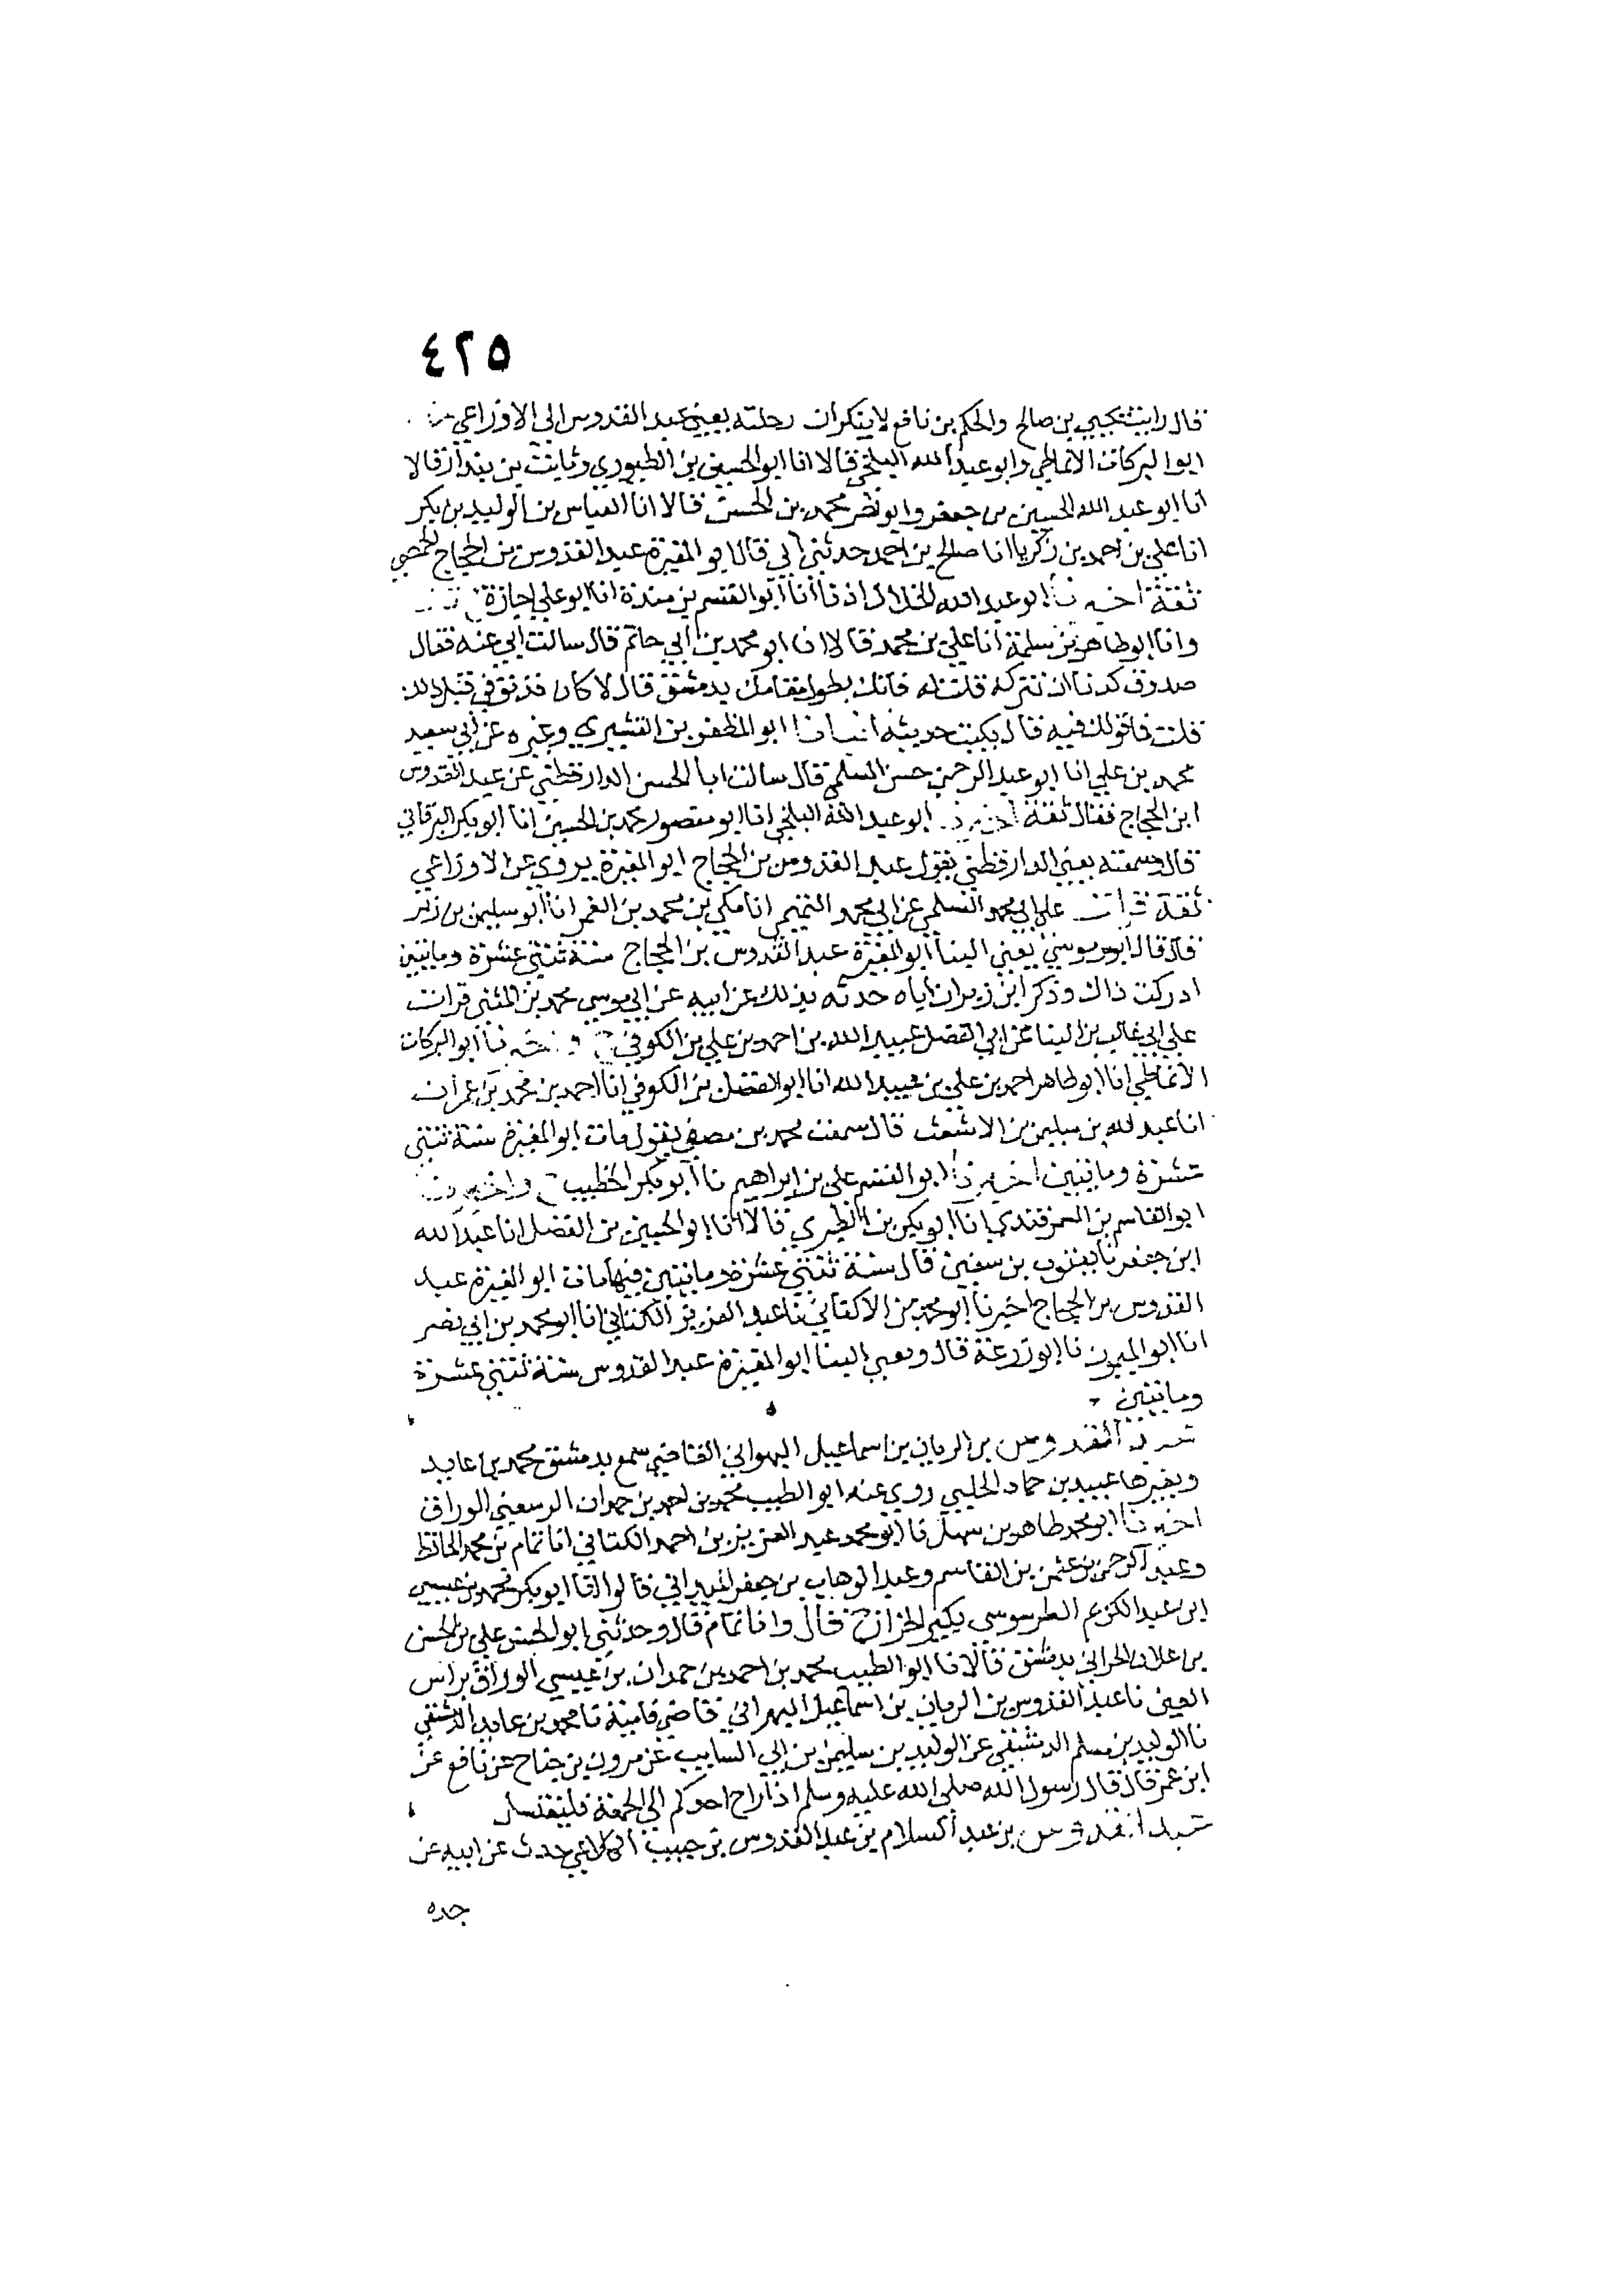 ٤٢٥
قال رايت يحيى بن صالح والحكم بن نافع لا ينكران رحلته يعني عبد القدوس الى الاوزاعي
ابو البركات الانماطي وابو عبد الله البلخي قالا انا ابو الحسين بن الطيوري وثابت بن بندار قالا
انا ابو عبد الله الحسين بن جعفر وابو نصر محمد بن الحسن قالا انا العباس بن الوليد بن بكر
انا علي بن احمد بن زكريا انا صالح بن احمد حدثني ابي قال ابو المغيرة عبد القدوس بن الحجاج الحمصي
ثقة اخبرنا ابو عبد الله الخلال اذنا انا ابو القسم بن مندة انا ابو علي اجازة
وانا ابو طاهر بن سلمة انا علي بن محمد قالا انا ابو محمد بن ابي حاتم قال سالت ابي عنه فقال
صدوق كدنا ان نتركه قلت له فانك بطول مقامك بدمشق قال لا كان قد توفي قبل ذلك
قلت فما قولك فيه قال يكتب حديثه انبانا ابو المظفر بن القشيري وغيره عن ابي سعيد
محمد بن علي انا ابو عبد الرحمن حسن السلمي قال سالت ابا الحسن الدارقطني عن عبد القدوس
ابن الحجاج فقال ثقة اخبرنا ابو عبد الله البلخي انا ابو منصور محمد بن الحسين انا ابو بكر البرقاني
قال وسمعته يعني الدارقطني يقول عبد القدوس بن الحجاج ابو المغيرة يروي عن الاوزاعي
ثقة قرات على ابي محمد السلمي عن ابي محمد التميمي انا مكي بن محمد بن الغمر انا ابو سليمن بن زبر
قال قال ابو موسى يعني الينا ابو المغيرة عبد القدوس بن الحجاج سنة ثنتي عشرة ومايتين
ادركت ذاك وذكر ابن زبر ان اياه حدثه بذلك عن ابيه عن ابي موسى محمد بن المثنى قرات
على ابي غالب بن البنا عن ابي الفضل عبيد الله بن احمد بن علي بن الكوفي واخبرنا ابو البركات
الانماطي انا ابو طاهر احمد بن علي بن عبيد الله انا ابو الفضل بن الكوفي انا احمد بن محمد بن عمران
انا عبد الله بن سليمن بن الاشعث قال سمعت محمد بن مصفى يقول مات ابو المغيرة سنة ثنتي
عشرة ومايتين اخبرنا ابو القسم علي بن ابراهيم نا ابو بكر الخطيب واخبرنا
ابو القاسم بن السمرقندي انا ابو بكر بن الطبري قالا انا ابو الحسين بن الفضل انا عبد الله
ابن جعفر نا يعقوب بن سفين قال سنة ثنتي عشرة ومايتين فيها مات ابو المغيرة عبد
القدوس بن الحجاج اخبرنا ابو محمد بن الاكفاني نا عبد العزيز الكتاني انا ابو محمد بن ابي نصر
انا ابو الميمون نا ابو زرعة قال ونعي الينا ابو المغيرة عبد القدوس سنة ثنتي عشرة
ومايتين
عبد القدوس بن الريان بن اسماعيل البهراني القاضي سمع بدمشق محمد بن عايد
وبغيرها عبيد بن حماد الحلبي روى عنه ابو الطيب محمد بن احمد بن حمدان الرسعني الوراق
اخبرنا ابو محمد طاهر بن سهل نا ابو محمد عبد العزيز بن احمد الكتاني انا تمام بن محمد الحافظ
وعبد الرحمن بن عثمن بن القاسم وعبد الوهاب بن جعفر الميداني قالوا انا ابو بكر محمد بن عيسى
ابن عبد الكريم الطرسوسي بكير الخزاز قال وانا تمام قال وحدثني ابو الحسن علي بن الحسن
بن علان الحراني بدمشق قالا نا ابو الطيب محمد بن احمد بن حمدان بن عيسى الوراق براس
العين نا عبد القدوس بن الريان بن اسماعيل البهراني قاضي فامية نا محمد بن عايد الدمشقي
نا الوليد بن مسلم الدمشقي عن الوليد بن سليمن بن ابي السايب عن مرون بن جناح عن نافع عن
ابن عمر قال قال رسول الله صلى الله عليه وسلم اذا راح احدكم الى الجمعة فليغتسل
عبد القدوس بن عبد السلام بن عبد القدوس بن حبيب الكلاعي حدث عن ابيه عن
جده